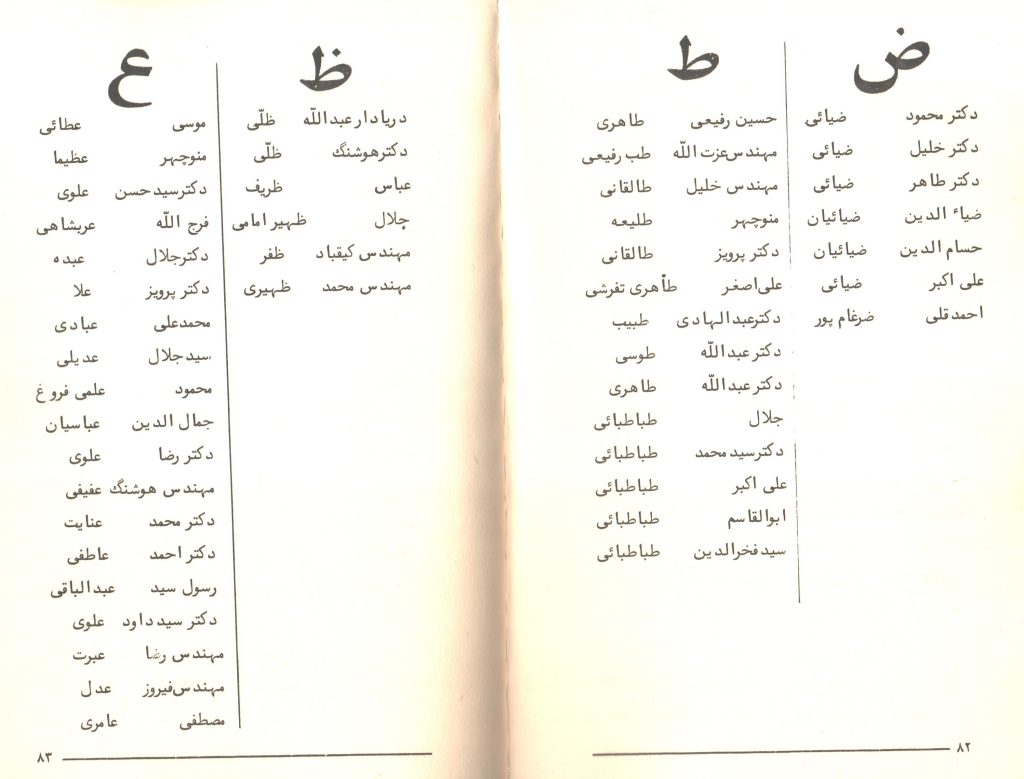 ض
دکتر محمود ضیائی
دکتر خلیل ضیائی
دکتر طاهر ضیائی
ضیاء الدین ضیائیان
حسام الدین ضیائیان
علی اکبر ضیائی
احمدقلی ضرغام پور
ط
حسین رفیعی طاهری
مهندس عزت الله طب رفیعی
مهندس خلیل طالقانی
منوچهر طلیعه
دکتر پرویز طالقانی
علی اصغر طاهری تفرشی
دکتر عبدالهادی طبیب
دکتر عبدالله طوسی
دکتر عبدالله طاهری
جلال طباطبائی
دکتر سید محمد طباطبائی
علی اکبر طباطبائی
ابوالقاسم طباطبائی
سید فخرالدین طباطبائی
۸۲
ظ
دریادار عبدالله ظلّی
دکتر هوشنگ ظلّی
عباس ظریف
جلال ظهیر امامی
مهندس کیقباد ظفر
مهندس محمد ظهیری
ع
موسی عطائی
منوچهر عظیما
دکتر سید حسن علوی
فرج الله عربشاهی
دکتر جلال عبده
دکتر پرویز علا
محمدعلی عبادی
سید جلال عدیلی
محمود علمی فروغ
جمال الدین عباسیان
دکتر رضا علوی
مهندس هوشنگ عفیفی
دکتر محمد عنایت
دکتر احمد عاطفی
رسول سید عبدالباقی
دکتر سید داود علوی
مهندس رضا عبرت
مهندس فیروز عدل
مصطفی عامری
۸۳